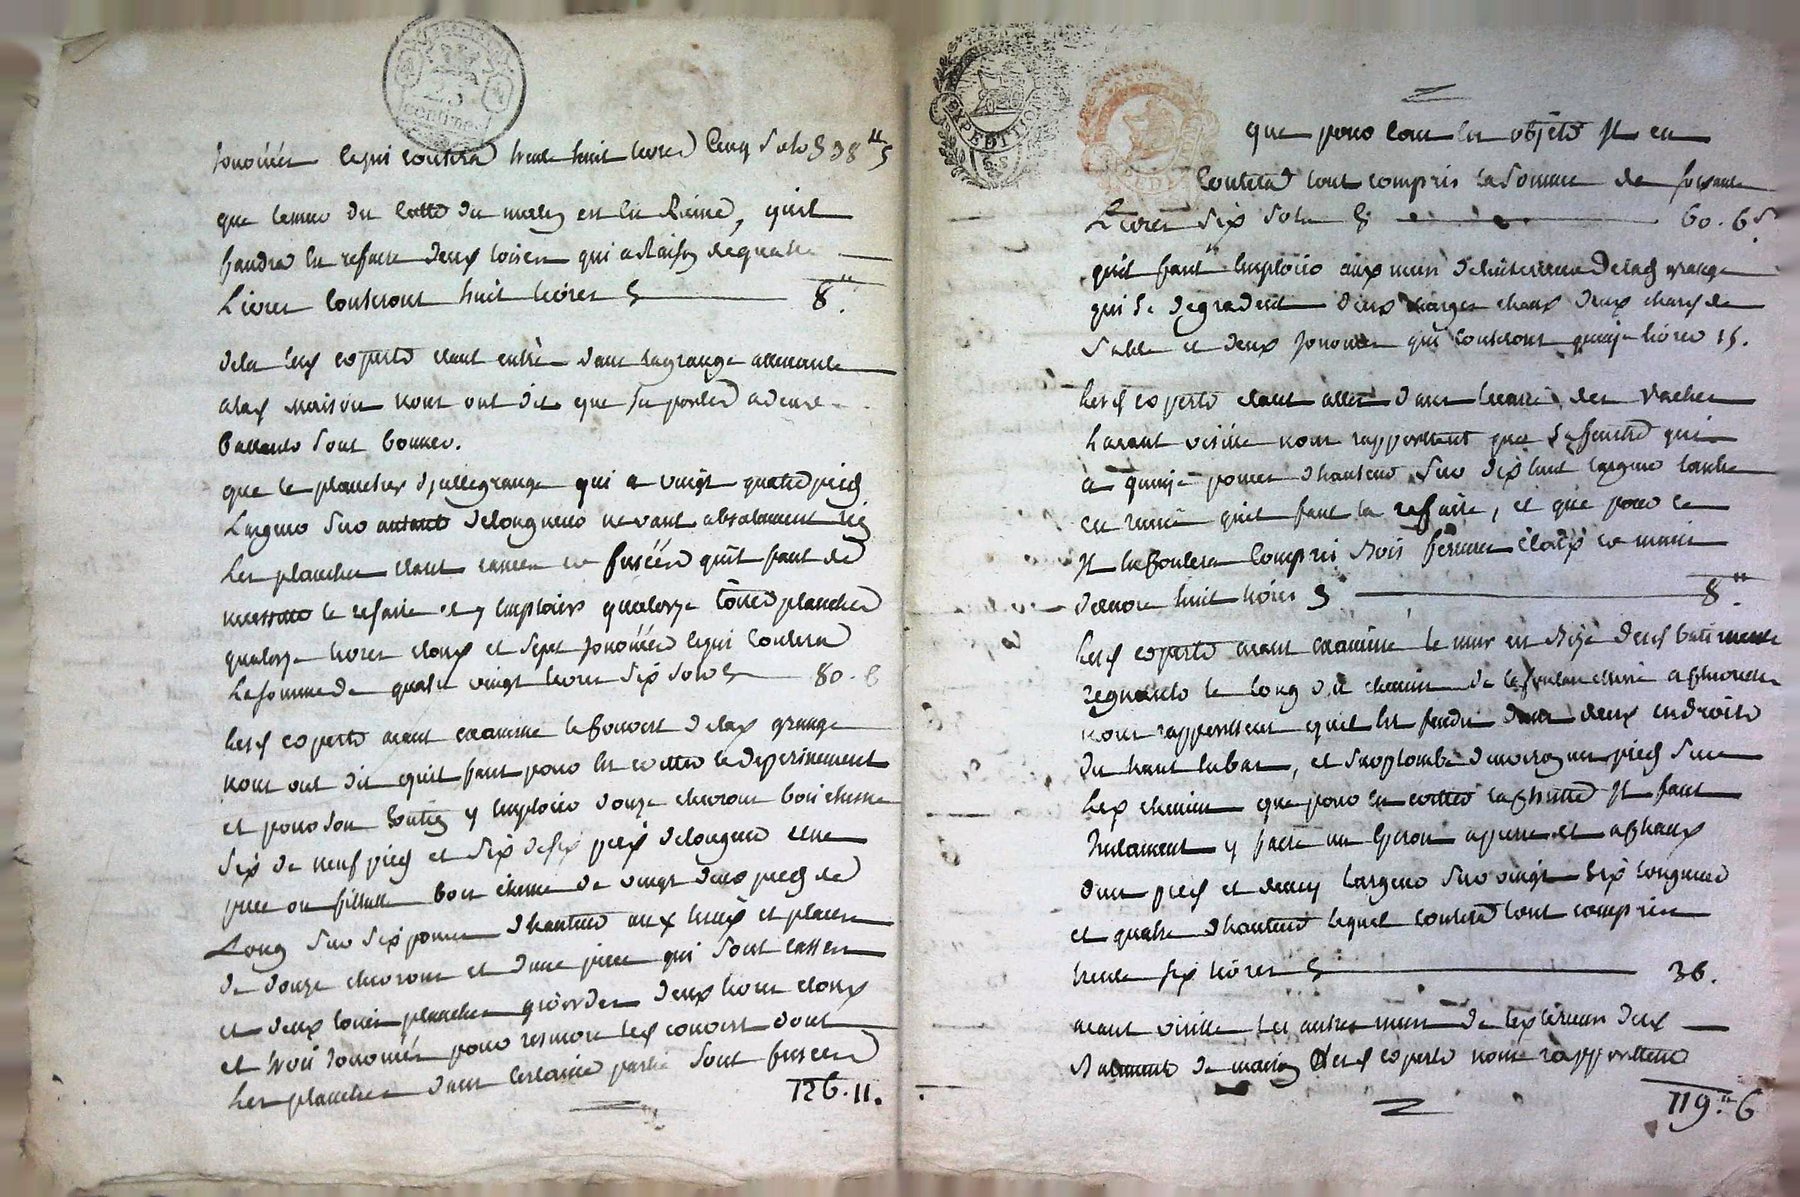 25
centimes
Jonoüés lequi coutera trente huit livres cinq sols 38" 5
que lemur du cotté du matin est en Ruine, quil
faudra en refaire deux toises qui a Raison de quatre
Livres couteront huit livres 8".
dela les experts étant entrés dans lagrange attenante
a la maison nous ont dit que sa porte a deux
Battants sont bonnes.
que le plancher d'jcellegrange qui a vingt quatre pieds
Largeur sur autant delongueur ne vaut absolument rien
Les planches étant cassées et fuséés quil faut de
necessité le refaire et y employer quatorze toises planches
quatorze livres cloux et sept jonoüéés lequi coutera
La somme de quatre vingt livres six sols 80. 6
Lesd experts aiant examiné le couvert de lad grange
nous ont dit quil faut pour en eviter le deperissement
et pour son soutien y employer douze chevrons bois chesne
six de neuf pieds et six de six pieds delongueur et une
piece ou filliere bois chesne de vingt deux pieds de
Long sur six pouces d'hauteur aux lieux et places
de douze chevrons et d'une piece qui sont cassées
et deux toises planches deux livres cloux
et trois jonoüés pour remettre led couvert dont
Les planches dans certaine partie sont fuséés
126. 11.
EXPEDITION
que pour tous les objets Il en
Coutera tout compris la somme de soixante
Livres six sols 60. 6s
quil faut employer aux murs de lad grange
qui se degradent deux charges chaux deux chars de
sable et deux jonoüés qui couteront quinze livres 15.
Lesd experts étant allés dans lecurie des vaches
Laiant visitée nous rapportent que la fenetre qui
a quinze pouces d'hauteur sur dix huit largeur
en ruine quil faut la refaire, et que pour ce
Il en coutera compris bois ferrure cloux et main
d'euvre huit livres 8".
Lesd experts aiant examiné le mur en bize desd batiments
regnants le long du chemin de
nous rapportent quil est fendu dans deux endroits
du haut enbas, et surplombe d'environ un pied sur
led chemin que pour en eviter la chutte Il faut
seulement y faire un eperon a pierre et a chaux
d'un pied et demy largeur sur vingt six longueur
et quatre d'hauteur lequel coutera tout compris
trente six livres 36.
aiant visitté les autres murs de lexterieur desd
Batiments de maison lesd experts nous rapportent
119." 6